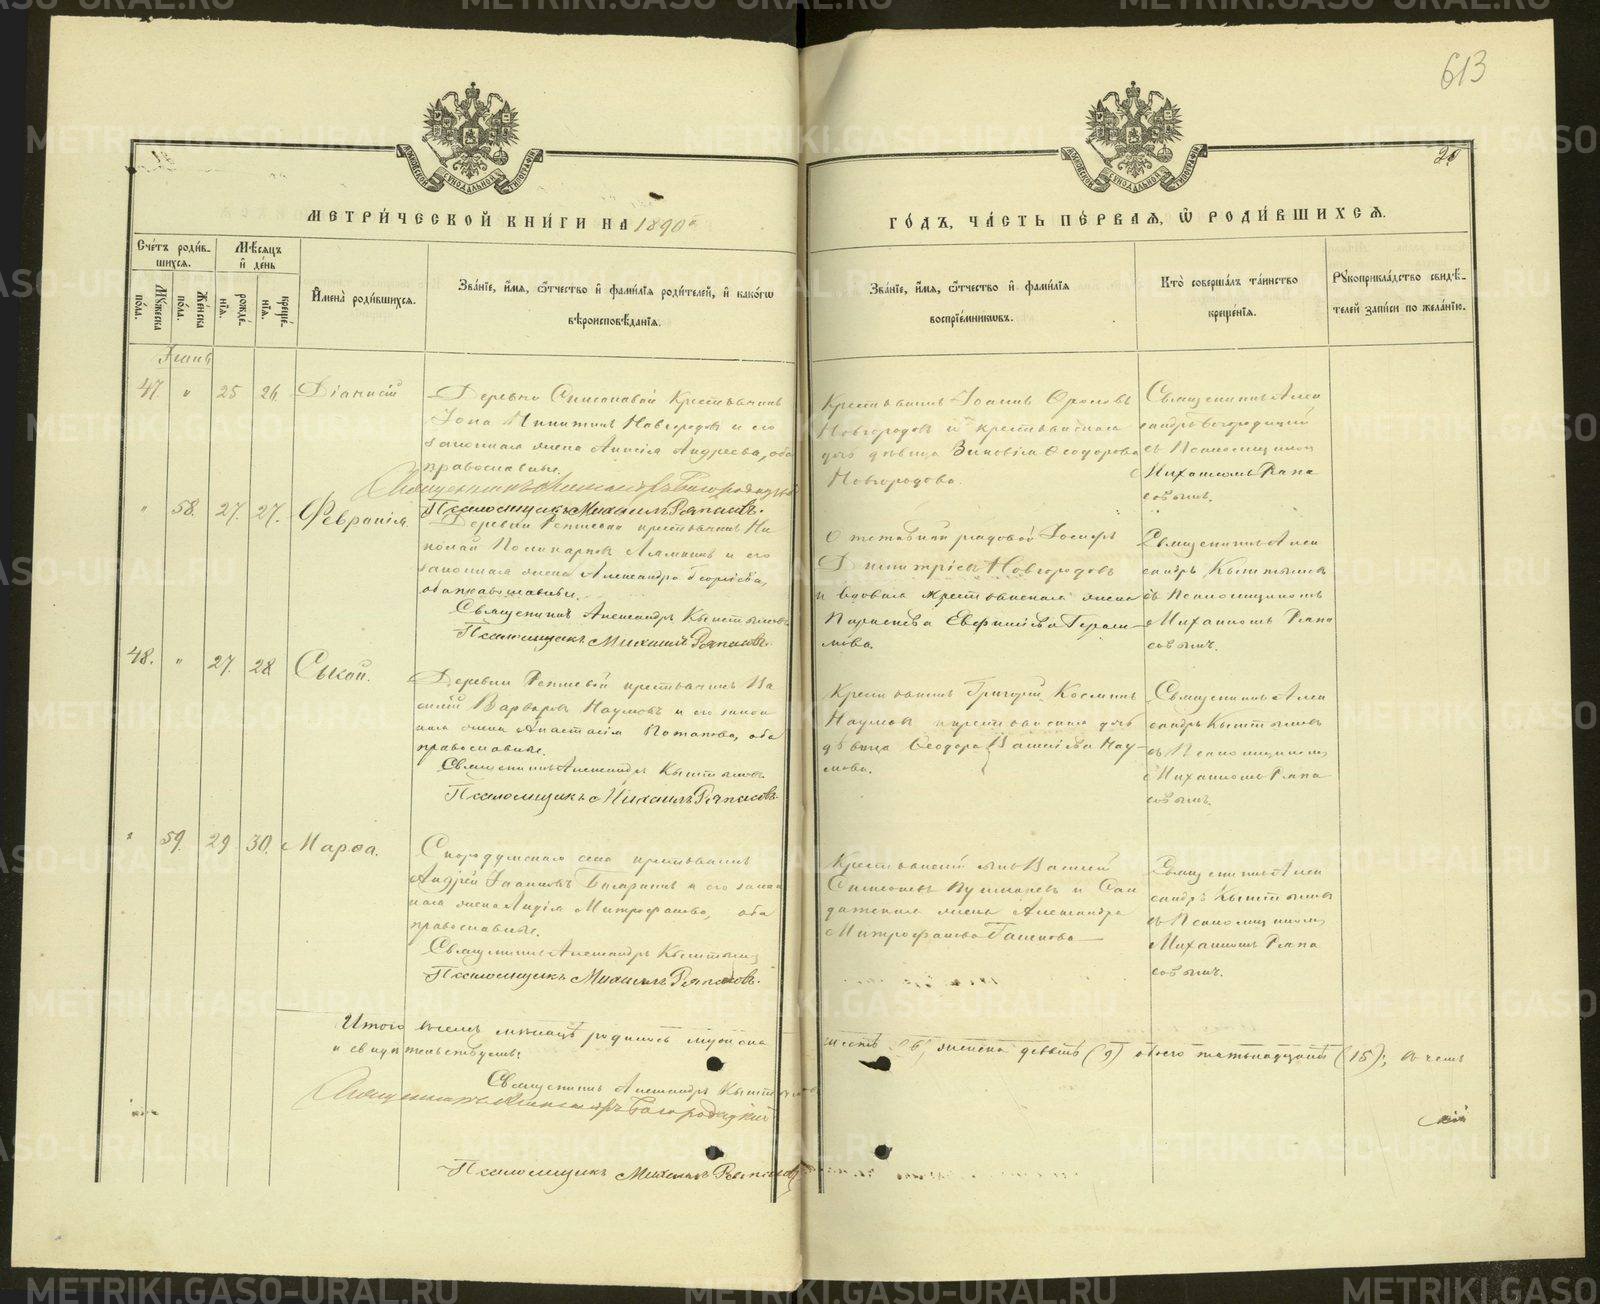 613
20
МЕТРИ́ЧЕСКОЙ КНИ́ГИ НА 1890й
ГО́ДЪ, ЧА́СТЬ ПЕ́РВАЯ, Ѽ РОДИ́ВШИХСЯ.
Сче́тъ роди́в-
шихся.
Мѣ́сяцъ
и҆ де́нь
Му́жеска
по́ла.
Же́нска
по́ла.
рожде́-
нїя.
креще́-
нїя.
И҆мена̀ роди́вшихся.
Зва́нїе, и҆́мя, ѻ҆́тчество и҆ фами́лїя роди́телей, и҆ како́гѡ
вѣроисповѣ́данїя.
Зва́нїе, и҆́мя, ѻ҆́тчество и҆ фами́лїя
воспрїе́мникѡвъ.
Кто̀ соверша́лъ та́инство
креще́нїя.
Рꙋкоприкла́дство свидѣ́-
телей за́писи по жела́нїю.
47. " 25 26 Діонисій
Деревни Крестьянинъ
Іона Никитинъ Новгородовъ и его
законная жена Анисія Андреева, оба
православные.
Священникъ Александръ Богородицкій
Псаломщикъ Михаилъ Ряпасовъ.
Крестьянинъ Іоаннъ Фроловъ
Новгородовъ и крестьянская
дочь дѣвица Зиновія Ѳеодорова
Новгородова.
Священникъ Алек
сандръ Богородицкій
съ Псаломщикомъ
Михаиломъ Ряпа
совымъ.
" 58. 27. 27. Февранія.
Деревни Реписной крестьянинъ Ни
колай Поликарповъ и его
законная жена Александра Георгіева,
оба православные.
Священникъ Александръ Кыштымовъ
Псаломщикъ Михаилъ Ряпасовъ.
Отставной рядовой Іосифъ
Димитріевъ Новгородовъ
и вдовая крестьянская жена
Параскева Евфиміева Гераси-
мова.
Священникъ Алек
сандръ Кыштымовъ
съ Псаломщикомъ
Михаиломъ Ряпа
совымъ.
48. " 27. 28 Сысой.
Деревни крестьянинъ Ва
силій Варваровъ Наумовъ и его закон
ная жена Анастасія Потапова, оба
православные.
Священникъ Александръ Кыштымовъ
Псаломщикъ Михаилъ Ряпасовъ.
Крестьянинъ Григорій Косминъ
Наумовъ и крестьянская дочь
дѣвица Ѳеодора Васильева Нау-
мова.
Священникъ Алек
сандръ Кыштымовъ
съ Псаломщикомъ
Михаиломъ Ряпа
совымъ.
" 59. 29 30. Марѳа.
села крестьянинъ
Андрей Іоанновъ и его закон
ная жена Лидія Митрофанова, оба
православные.
Священникъ Александръ Кыштымовъ
Псаломщикъ Михаилъ Ряпасовъ.
Крестьянскій сынъ Василій
Симеоновъ Пушкаревъ и Сол
датская жена Александра
Митрофанова
Священникъ Алек
сандръ Кыштымовъ
съ Псаломщикомъ
Михаиломъ Ряпа
совымъ.
Итого въ семъ мѣсяцѣ родилось мужска шесть (6) женска девять (9) обоего пятьнадцать (15); въ чемъ
и свидѣтельствуемъ:
Священникъ Александръ Кыштымовъ
Священникъ Александръ Богородицкій
Псаломщикъ Михаилъ Ряпасовъ
METRIKI.GASO-URAL.RU